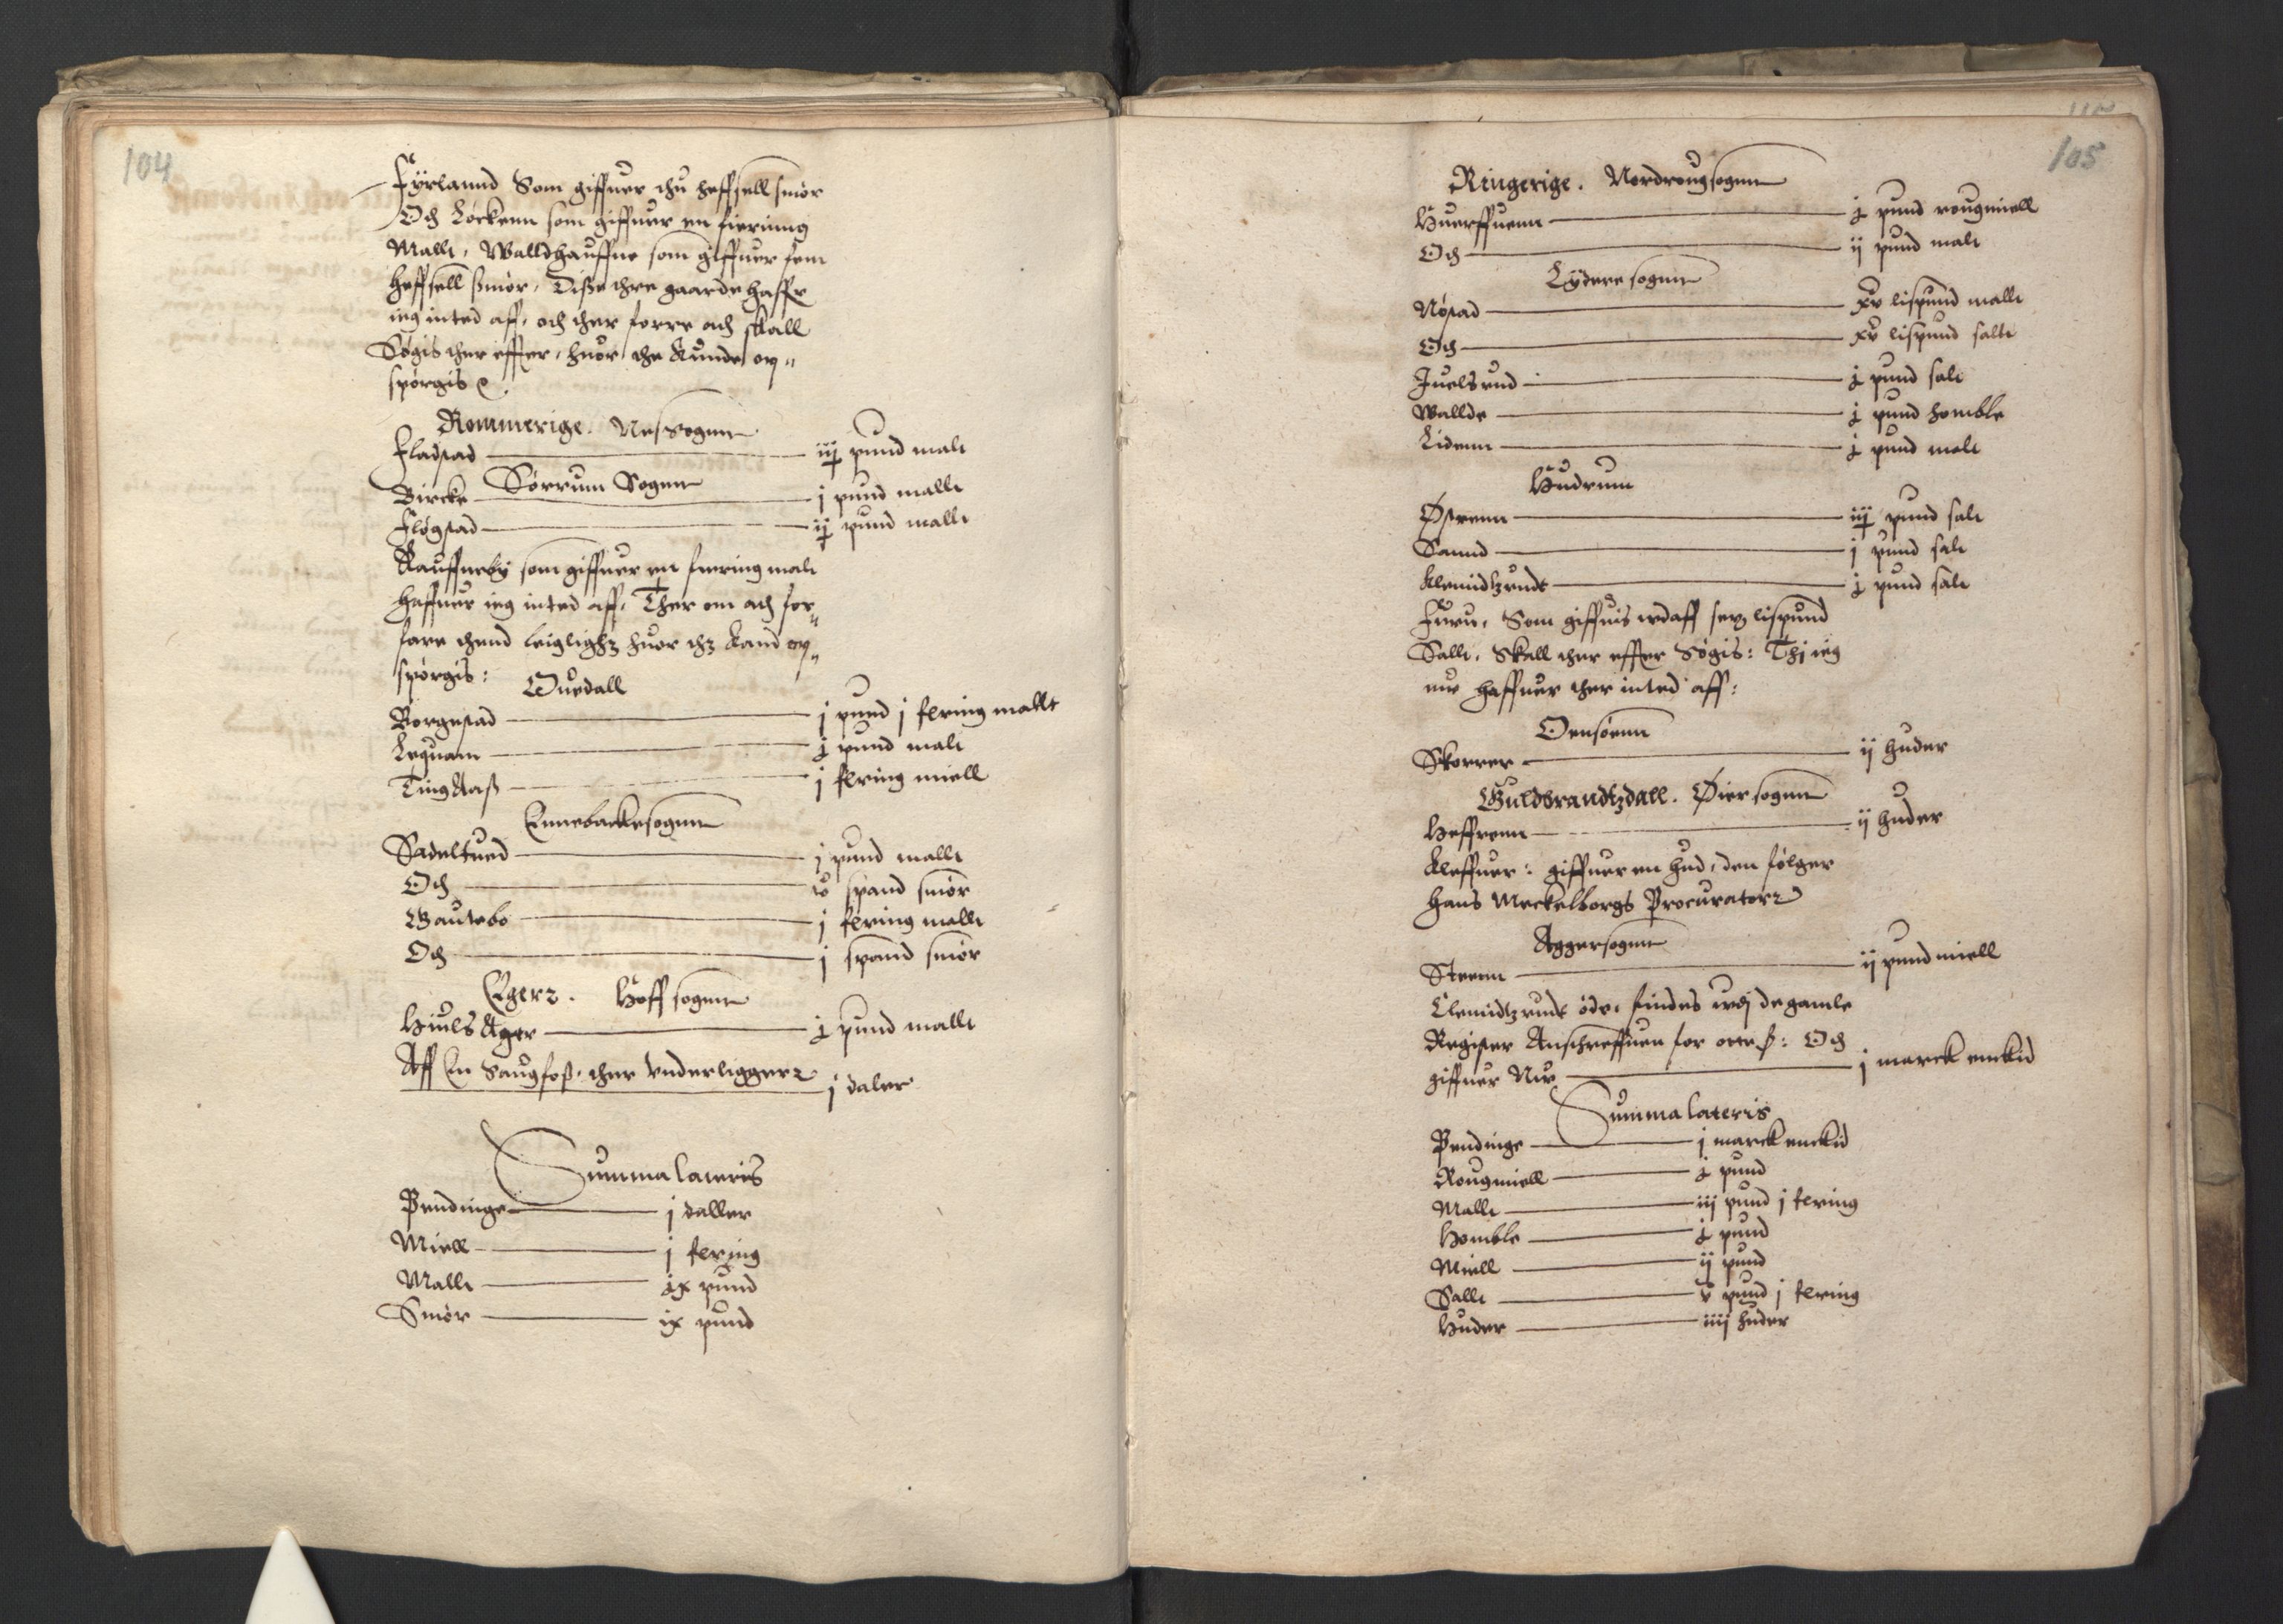 104
Fÿrlannd Som giffuer thu heffsell smór
Och Lóckenn som giffuer en fierinng
Mallt, Walldhauffne som giffuer fem
heffsell smór, Disse thre gaarde haffr
ieg inted aff, och ther forre och skall
Sógis ther effter, huor the kunde op„
spórgis
Rommerige. Nessogenn
Fladstad iij pund malt
Sórrum Sogenn
Bircke j pund mallt
Flógstad ij pund mallt
Rauffueby som giffuer en fiering malt
haffuer ieg inted aff, Ther om och for„
fare thend leiglighz huor thz kand op„
spórgis:
Ouedall
Borgestad j pund j fering mallt
Lequam j pund malt
Tingaas j fering miell
Ennebackesogenn
Sadeltued j pund mallt
Och v spand smór
Gautebo j fering mallt
Och j spand smór
Eger. Hoffsogenn
Hiuls Ager j pund mallt
Aff En Saugfoss, ther vnderligger j daler
Summa lateris
Pendinge j daller
Miell j fering
Mallt ix pund
Smór ix pund
105
Ringerige. Nordrougsogenn
Huerffuenn j pund rougmiell
Och ij pund malt
Lÿdere sogenn
Nóstad xv lispund mallt
Och xv lispund sallt
Juelsrud j pund salt
Wallde j pund homble
Lidenn j pund malt
Hudrum
Østenn iij pund salt
Sannd j pund salt
Klemidtzrudt j pund salt
Furu, Som giffuis vdaff sex lispund
Sallt, Skall ther effter Sógis: Thj ieg
nu haffuer ther inted aff:
Oensóenn
Skorrer ij huder
Guldbrandtzdall. Øiersogenn
Heffrenn ij huder
Kleffuer: giffuer en hud, den fólger
Hans Meckelborgs Procurator
Aggersogenn
Steenn ij pund miell
Clemidtzrudt óde, findes vdj de gamle
Register Anschreffuen for otte ß: Och
giffuer Nu j marck enckid
Summa lateris
Pendinge j marck enckid
Rougmiell j pund
Mallt iij pund j fering
Homble j pund
Miell ij pund
Sallt v pund j fering
Huder iiij huder